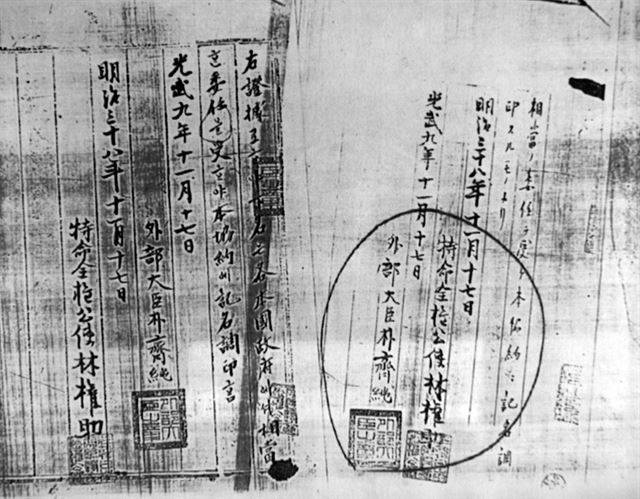 相當ノ委任ヲ受ケ本協約ニ記名調
印スルモノナリ
明治三十八年十一月十七日
特命全権公使林権助
光武九年十一月十七日
外部大臣朴齊純
右證據 下名은各本國政府에셔相當
委任을受 本協約에記名調印
光武九年十一月十七日
外部大臣朴齊純
明治三十八年十一月十七日
特命全権公使林権助